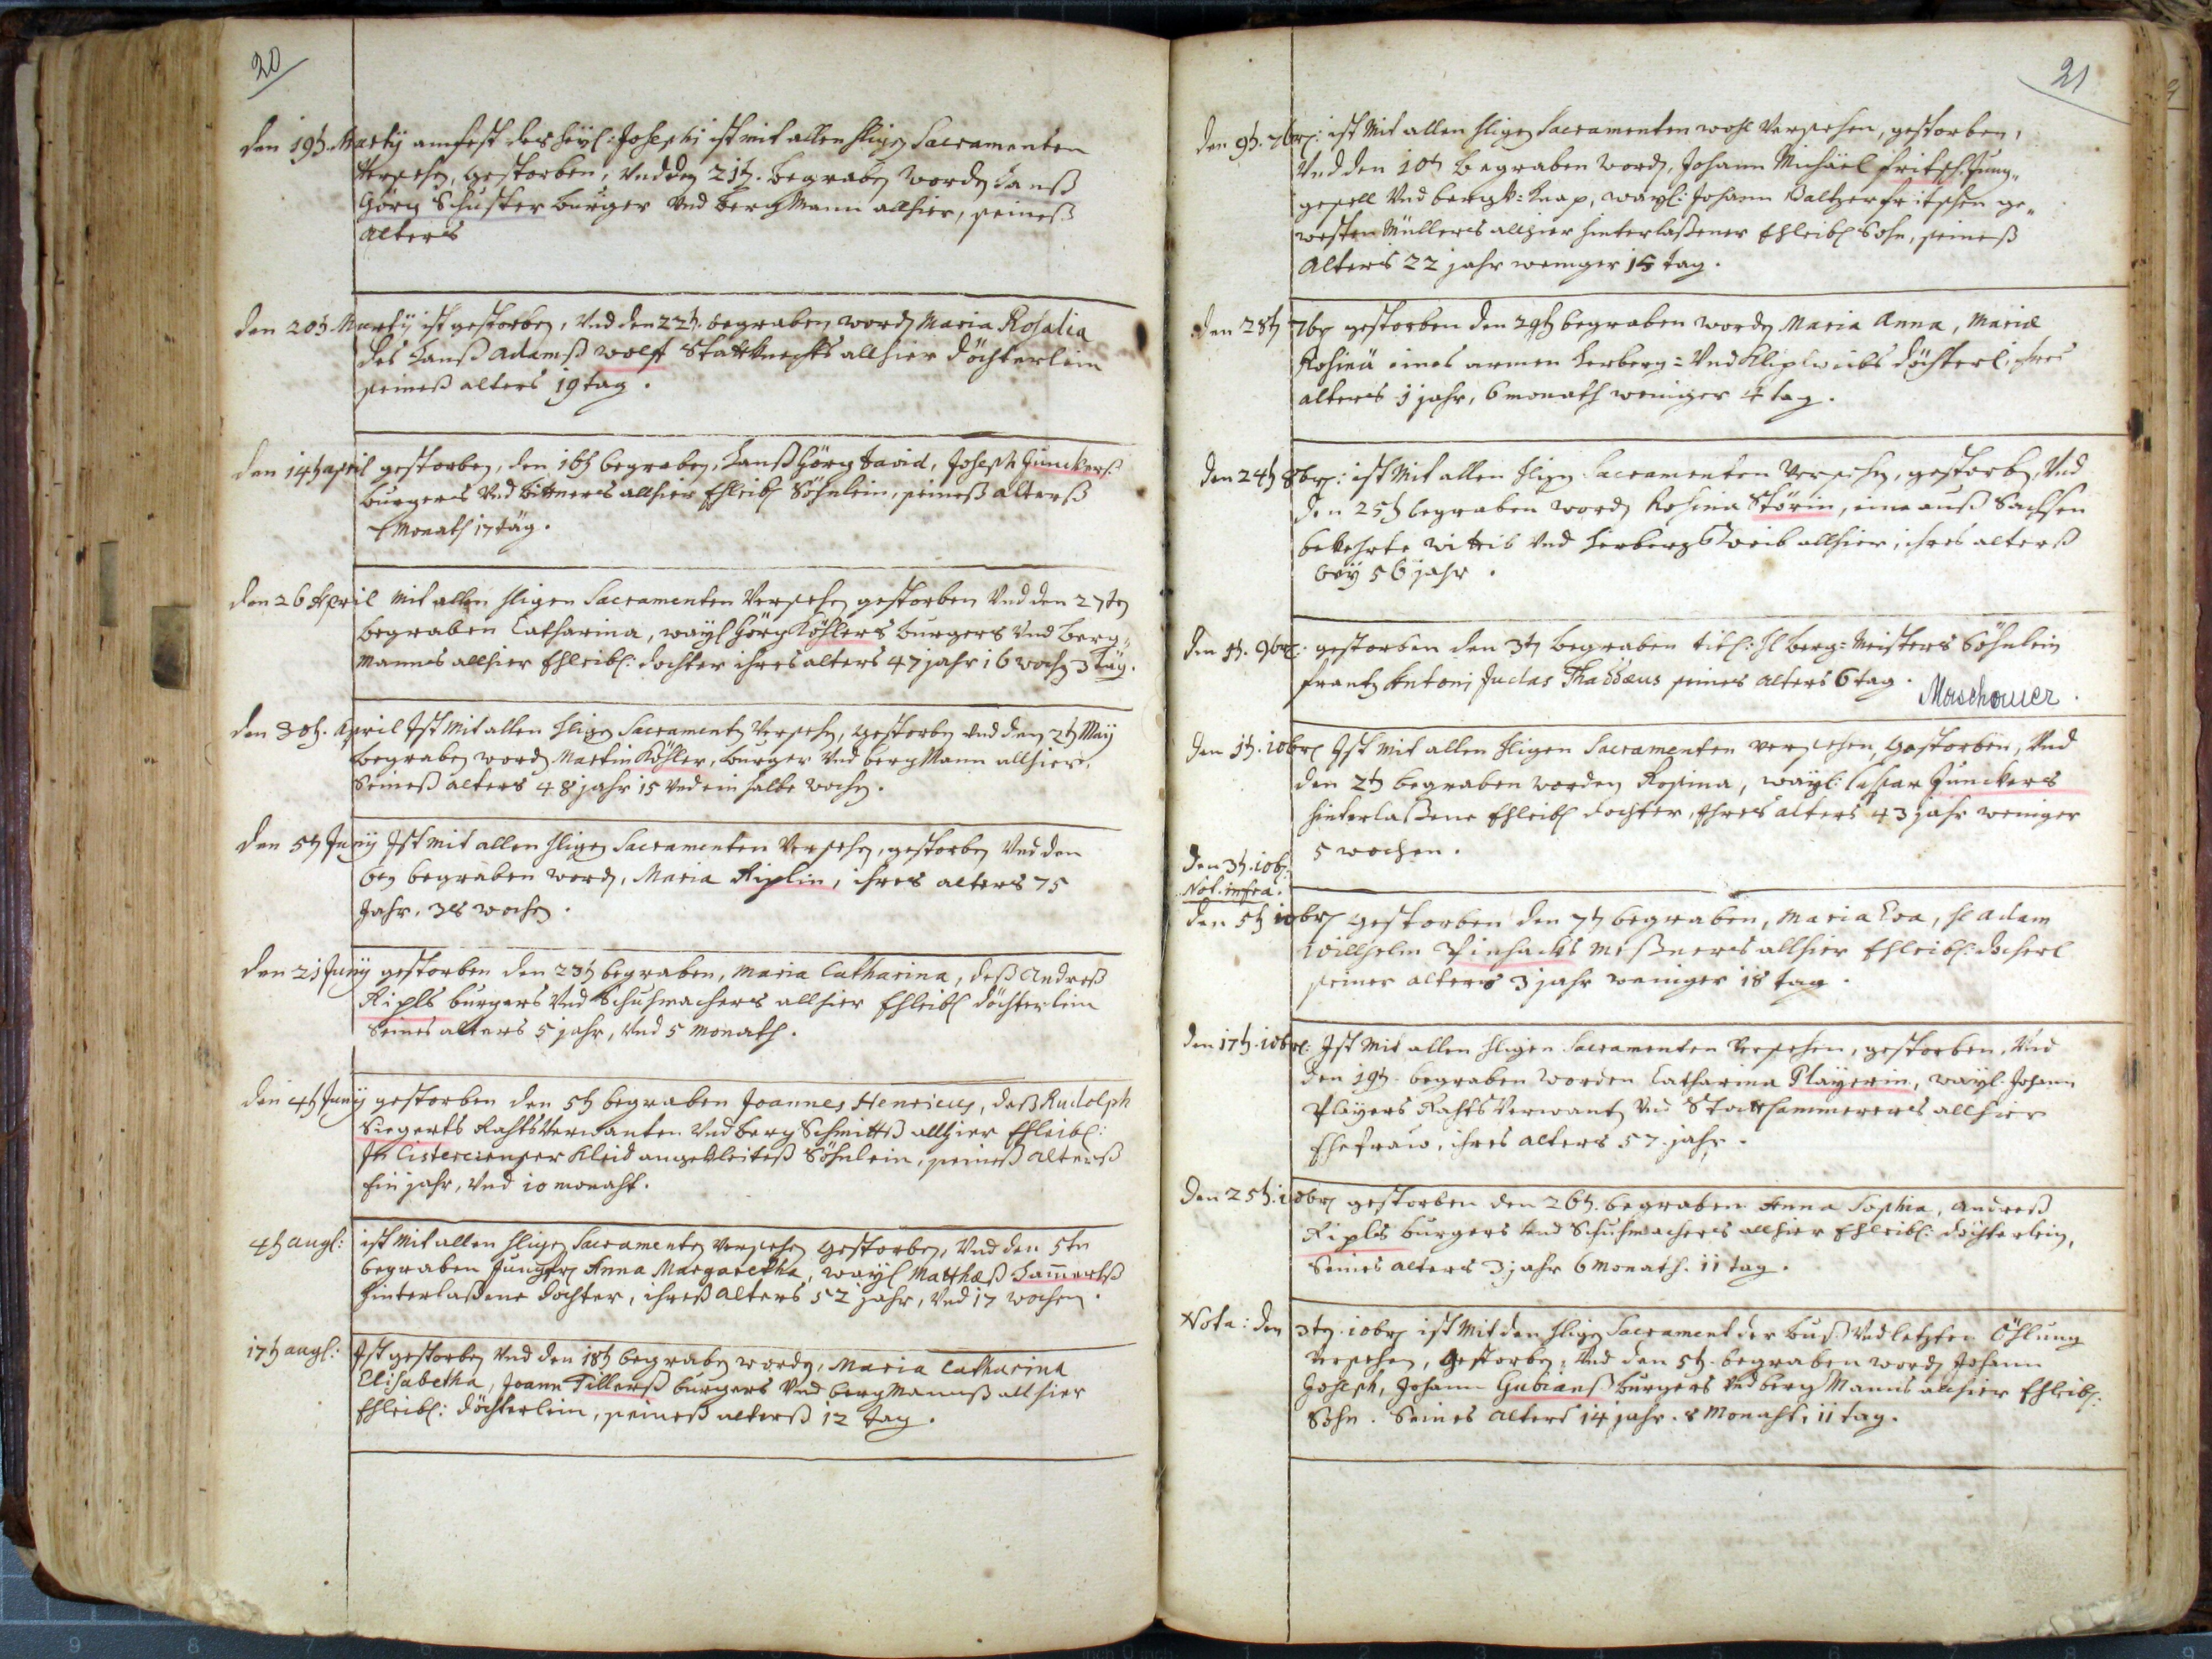 20
den 19t. Martÿ am fest des heÿl: Josephi ist mit allen hligen Sacramenten
Versehen, gestorben, Vnd den 21t. begraben worden Hanß
Görg Schuster burger Vnd bergMann allhier, seineß
alters
den 20t Martÿ ist gestorben, Vnd den 22t. begraben worden Maria Rosalia
des Hanß Adamß wolff StattKnechts allhier döchterlein
seineß alters 19 tag.
den 14t april gestorben, den 16t begraben, Hanß Görg David, Joseph Junckerß
burgers Vnd bittners allhier Ehleibl Söhnlein, seineß alterß
Monath 17 täg.
den 26 April mit allen hligen Sacramenten Versehen gestorben Vnd den 27ten
begraben Catharina, waÿl Görg Köhlers burgers Vnd berg-
Mannes allhier Ehleibl: dochter ihres alters 47 jahr 16 wochen 3 täg.
den 30t. April Ist mit allen hligen Sacramenten Versehen, gestorben Vnd den 2t Maÿ
begraben worden Martin Köhler, burger Vnd bergMann allhier,
Seineß alters 48 jahr 15 Vnd ein halbe wochen.
den 5t Junÿ Ist mit allen hligen Sacramenten Versehen, gestorben Vnd den
6ten begraben worden, Maria Riplin, ihres alters 75
Jahr, wochen.
den 21 Junÿ gestorben den 23t begraben, Maria Catharina, deß Andreß
Ripls burgers Vnd Schuhmachers allhier Ehleibl döchterlein
Seines alters 5 jahr, Vnd 5 Monath.
den 4t Junÿ gestorben den 5t begraben Joannes Henricus, deß Rudolph
Siegerts RahtsVerwanten Vnd bergSchmittß allhier Ehleibl:
In Cistercienser Kleid angekleiteß Söhnlein, seineß alterß
Ein jahr, Vnd 10 monaht.
4t augl: ist mit allen hligen Sacramenten Versehen gestorben, Vnd den 5ten
begraben Jungfr Anna Margaretha, waÿl Matthæß Ham̄ertß
hinterlaßene dochter, ihreß alters 52 jahr, Vnd 17 wochen.
17t augl: Ist gestorben Vnd den 18t begraben worden, Maria Catharina
Elisabetha, Joann Tillerß burgers Vnd bergManneß allhier
Ehleibl: döchterlein, seineß alterß 12 tag.
21
den 9t. 7br: ist Mit allen hligen Sacramenten wohl Versehen, gestorben,
Vnd den 10t begraben worden, Johann Michäel Fritsch Jung-
gesell Vnd berg=Knap, waÿl: Johann Baltzer Fritschen ge-
westen Müllers allhier hinterlaßener Ehleibl Sohn, seineß
Alters 22 jahr weniger 15 tag.
den 28t 7br gestorben den 29t begraben worden Maria Anna, Mariæ
Rosinä eines armen Herberg= Vnd Kliplweibs döchterl, ihres
alters 1 jahr, 6 monath weniger 4 tag.
den 24t 8br: ist Mit allen hligen Sacramenten Versehen, gestorben, Vnd
den 25t begraben worden Rosina Störin, eine auß Sachsen
bekehrte wittib Vnd Herbergsweib allhier, ihres alterß
beÿ 56 jahr.
den 1t. 9br: gestorben den 3ten begraben titl: Hl Berg=Meisters Söhnlein
Frantz Antoni Judas Thaddæus seines alters 6 tag.
Maschauer.
den 1t. 10br Ist mit allen hligen Sacramenten versehen, gestorben, Vnd
den 2t begraben worden Rosina, waÿl: Caspar Junckers
hinterlaßene Ehleibl dochter, Ihres alters 43 jahr weniger
5 wochen.
den 3t. 10b:
Not. infra.
den 5t 10br gestorben den 7t begraben, Maria Eva, Hl Adam
Willhelm Pinhacks Meßners allhier Ehleibl: docherl
seines alters 3 jahr weniger 18 tag.
den 17t. 10br: Ist Mit allen hligen Sacramenten Versehen, gestorben, Vnd
den 19t. begraben worden Catharina Plaÿerin, waÿl. Johann
Plaÿers RahtsVerwants Vnd Stattkammerers allhier
Ehefraw, ihres alters 57. jahr.
den 25t. 10br gestorben den 26t. begraben Anna Sophia, Andreß
Ripls burgers Vnd Schuhmachers allhier Ehleibl: döchterlein,
Seines alters 3 jahr 6 Monath. 11 tag.
Nota: den 3ten. 10br ist Mit den hligen Sacrament der buß Vnd letzten Öhlung
Versehen, gestorben, Vnd den 5t. begraben worden Johann
Joseph, Johann Gubianß burgers Vnd bergManns allhier Ehleibl:
Sohn. Seines alters 14 jahr. 8 Monaht, 11 tag.